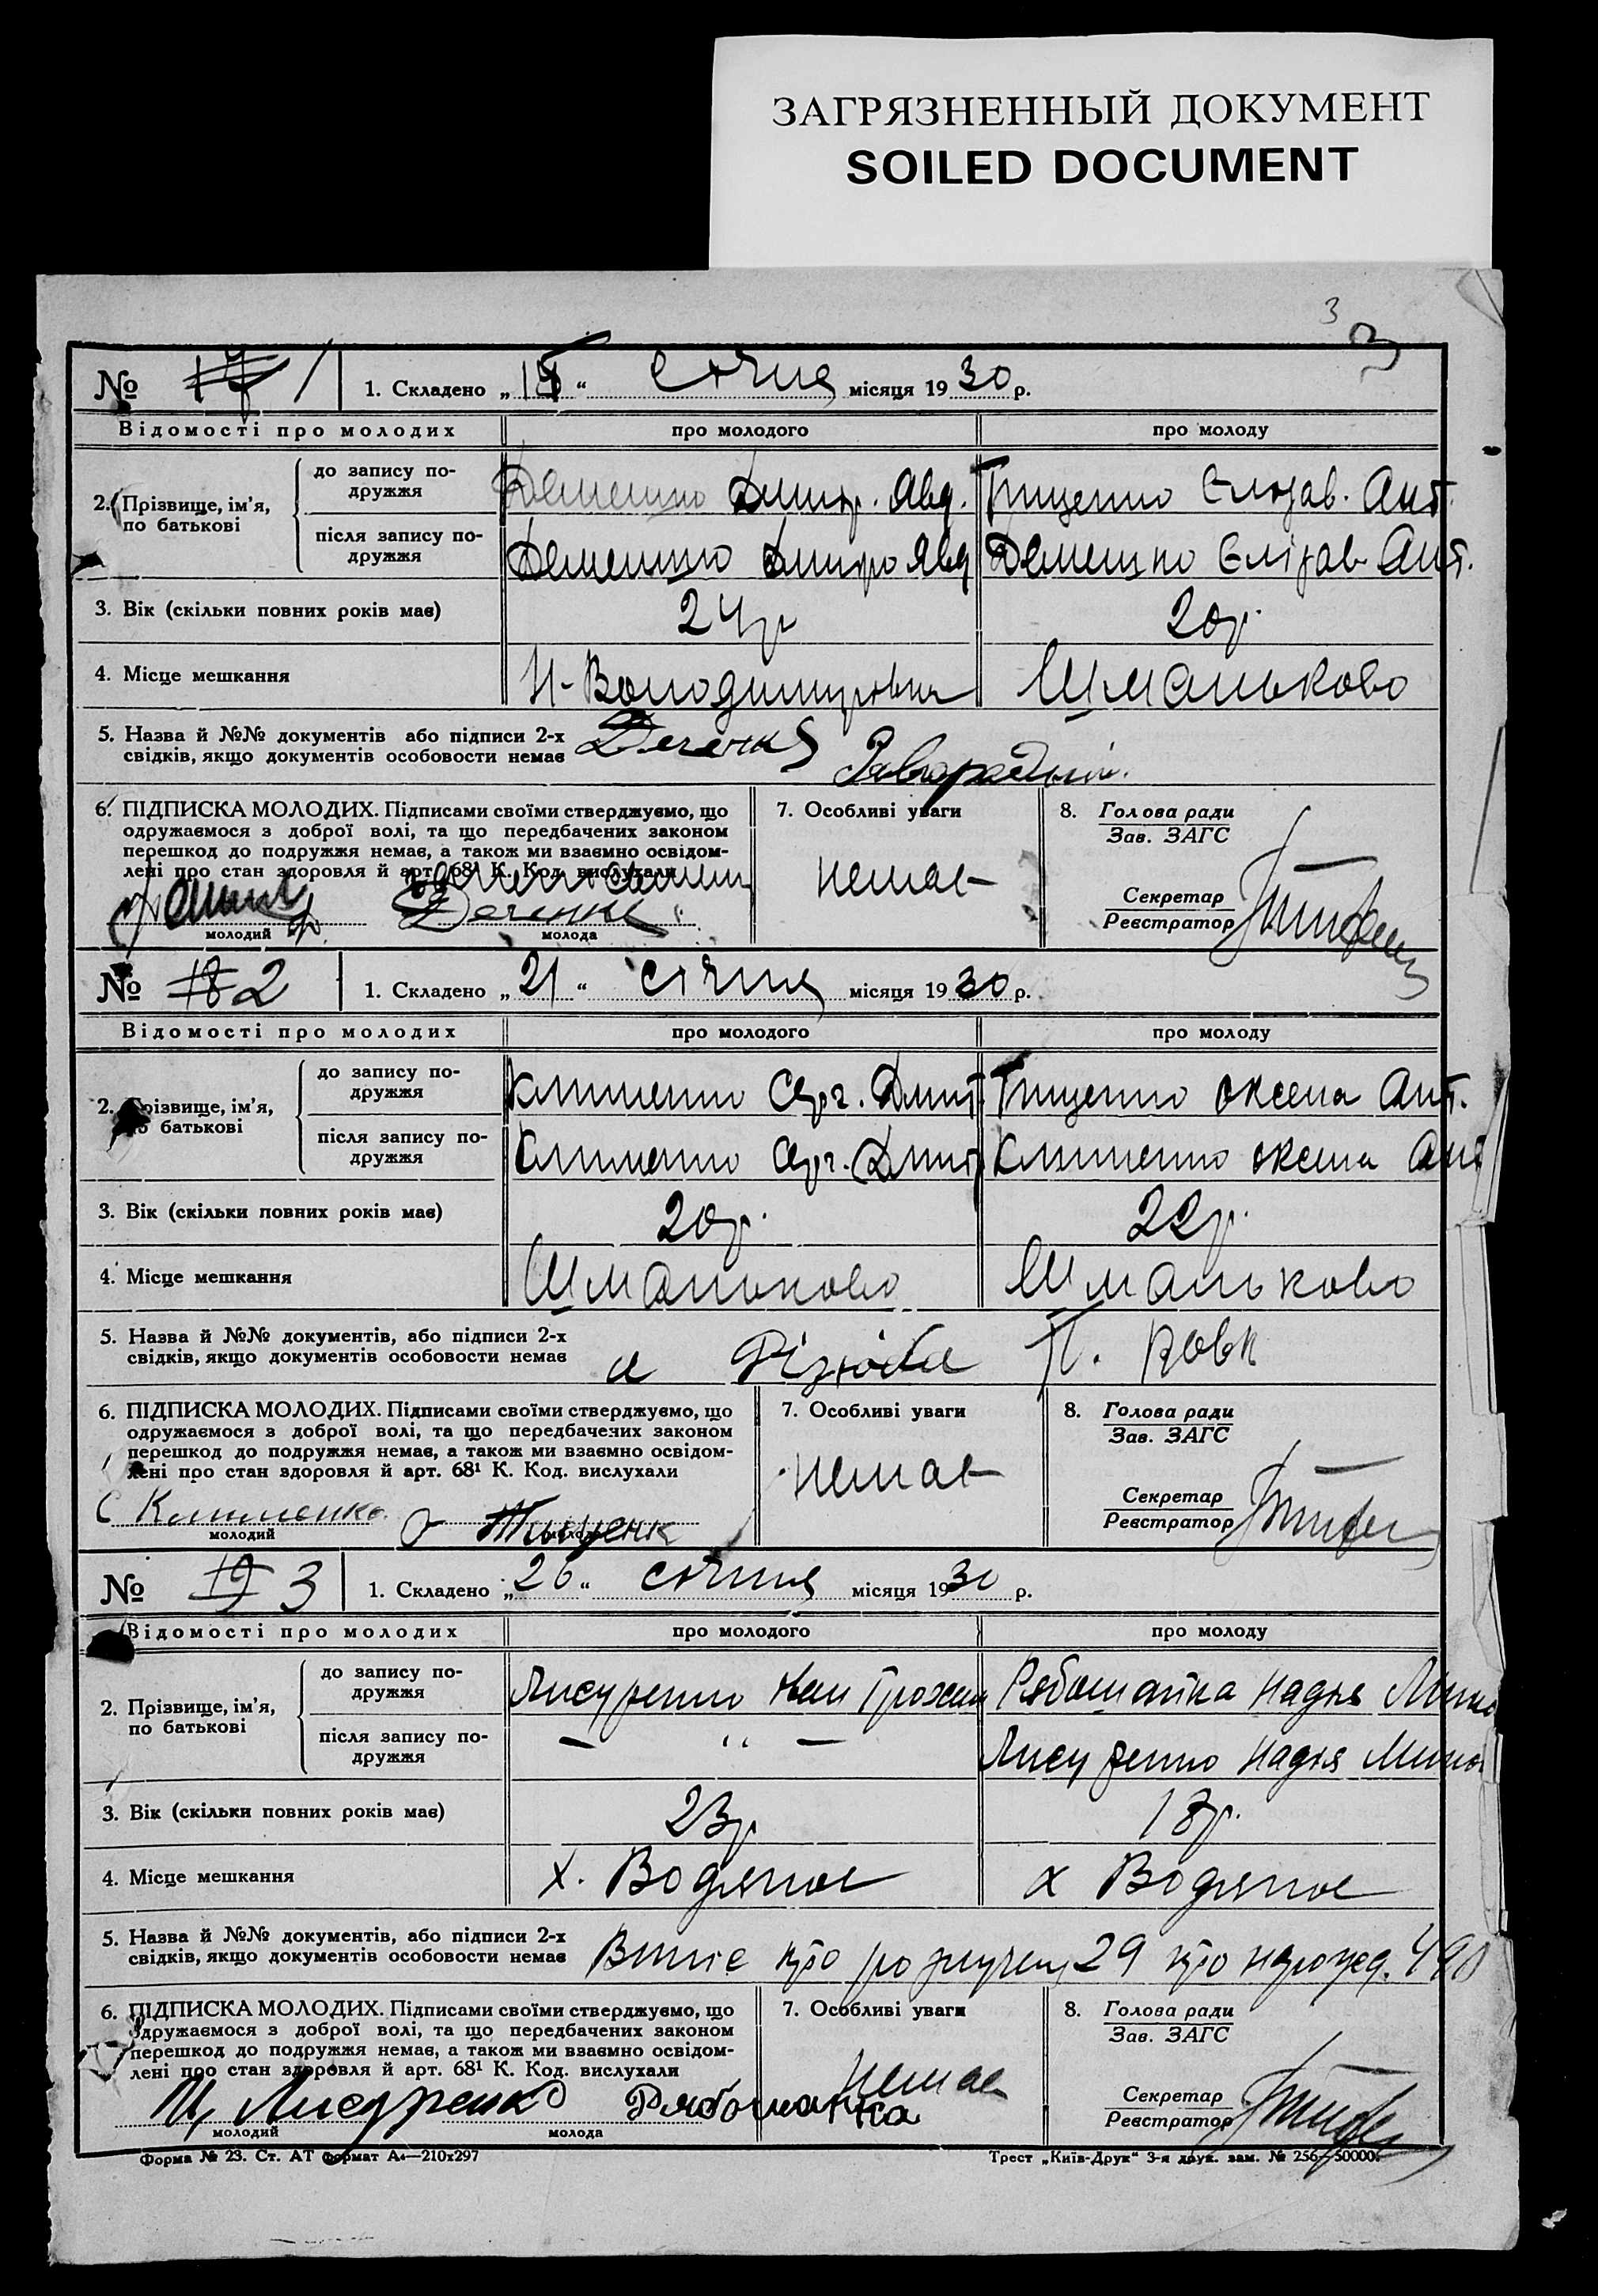 ЗАГРЯЗНЕННЫЙ ДОКУМЕНТ
SOILED DOCUMENT
3
3
№ 17 1 1. Складено „ “ січня місяця 1930 р.
Відомості про молодих про молодого про молоду
2. Прізвище, ім’я, по батькові
до запису подружжя Демешко Дмитр. Авд. Тищенко Єлизав. Ант.
після запису подружжя Демешко Дмитро Явд Демешко Єлізав Ант.
3. Вік (скільки повних років має) 24 р 20 р.
4. Місце мешкання Н-Володимирівка Шманьково
5. Назва й №№ документів або підписи 2-х
свідків, якщо документів особовости немає
6. ПІДПИСКА МОЛОДИХ. Підписами своїми стверджуємо, що
одружаємося з доброї волі, та що передбачених законом
перешкод до подружжя немає, а також ми взаємно освідом-
лені про стан здоровля й арт. 68¹ К. Код. вислухали
молодий молода
7. Особливі уваги
немає
8. Голова ради
Зав. ЗАГС
Секретар
Реєстратор
№ 18 2 1. Складено „21“ січня місяця 1930 р.
Відомості про молодих про молодого про молоду
2. Прізвище, ім’я, по батькові
до запису подружжя Клименко Серг. Дмит. Тищенко Оксена Ант.
після запису подружжя Клименко Серг. Дмит. Клименко Оксена Ант
3. Вік (скільки повних років має) 20 р. 22 р.
4. Місце мешкання Шманьково Шманьково
5. Назва й №№ документів, або підписи 2-х
свідків, якщо документів особовости немає П. Вовк
6. ПІДПИСКА МОЛОДИХ. Підписами своїми стверджуємо, що
одружаємося з доброї волі, та що передбачених законом
перешкод до подружжя немає, а також ми взаємно освідом-
лені про стан здоровля й арт. 68¹ К. Код. вислухали
С Клименко О Тищенк
молодий молода
7. Особливі уваги
немає
8. Голова ради
Зав. ЗАГС
Секретар
Реєстратор
№ 19 3 1. Складено „26“ січня місяця 1930 р.
Відомості про молодих про молодого про молоду
2. Прізвище, ім’я, по батькові
до запису подружжя Лисуренко Рябошапка Надія
після запису подружжя — “ — Лисуренко Надія
3. Вік (скільки повних років має) 23 р 18 р.
4. Місце мешкання х. Водяное х Водяное
5. Назва й №№ документів, або підписи 2-х
свідків, якщо документів особовости немає про 29 про
6. ПІДПИСКА МОЛОДИХ. Підписами своїми стверджуємо, що
одружаємося з доброї волі, та що передбачених законом
перешкод до подружжя немає, а також ми взаємно освідом-
лені про стан здоровля й арт. 68¹ К. Код. вислухали
Лисуренко Рябошапка
молодий молода
7. Особливі уваги
немає
8. Голова ради
Зав. ЗАГС
Секретар
Реєстратор
Форма № 23. Ст. АТ формат А₄—210х297 Трест „Київ-Друк“ 3-я друк. зам. № 256—50000.